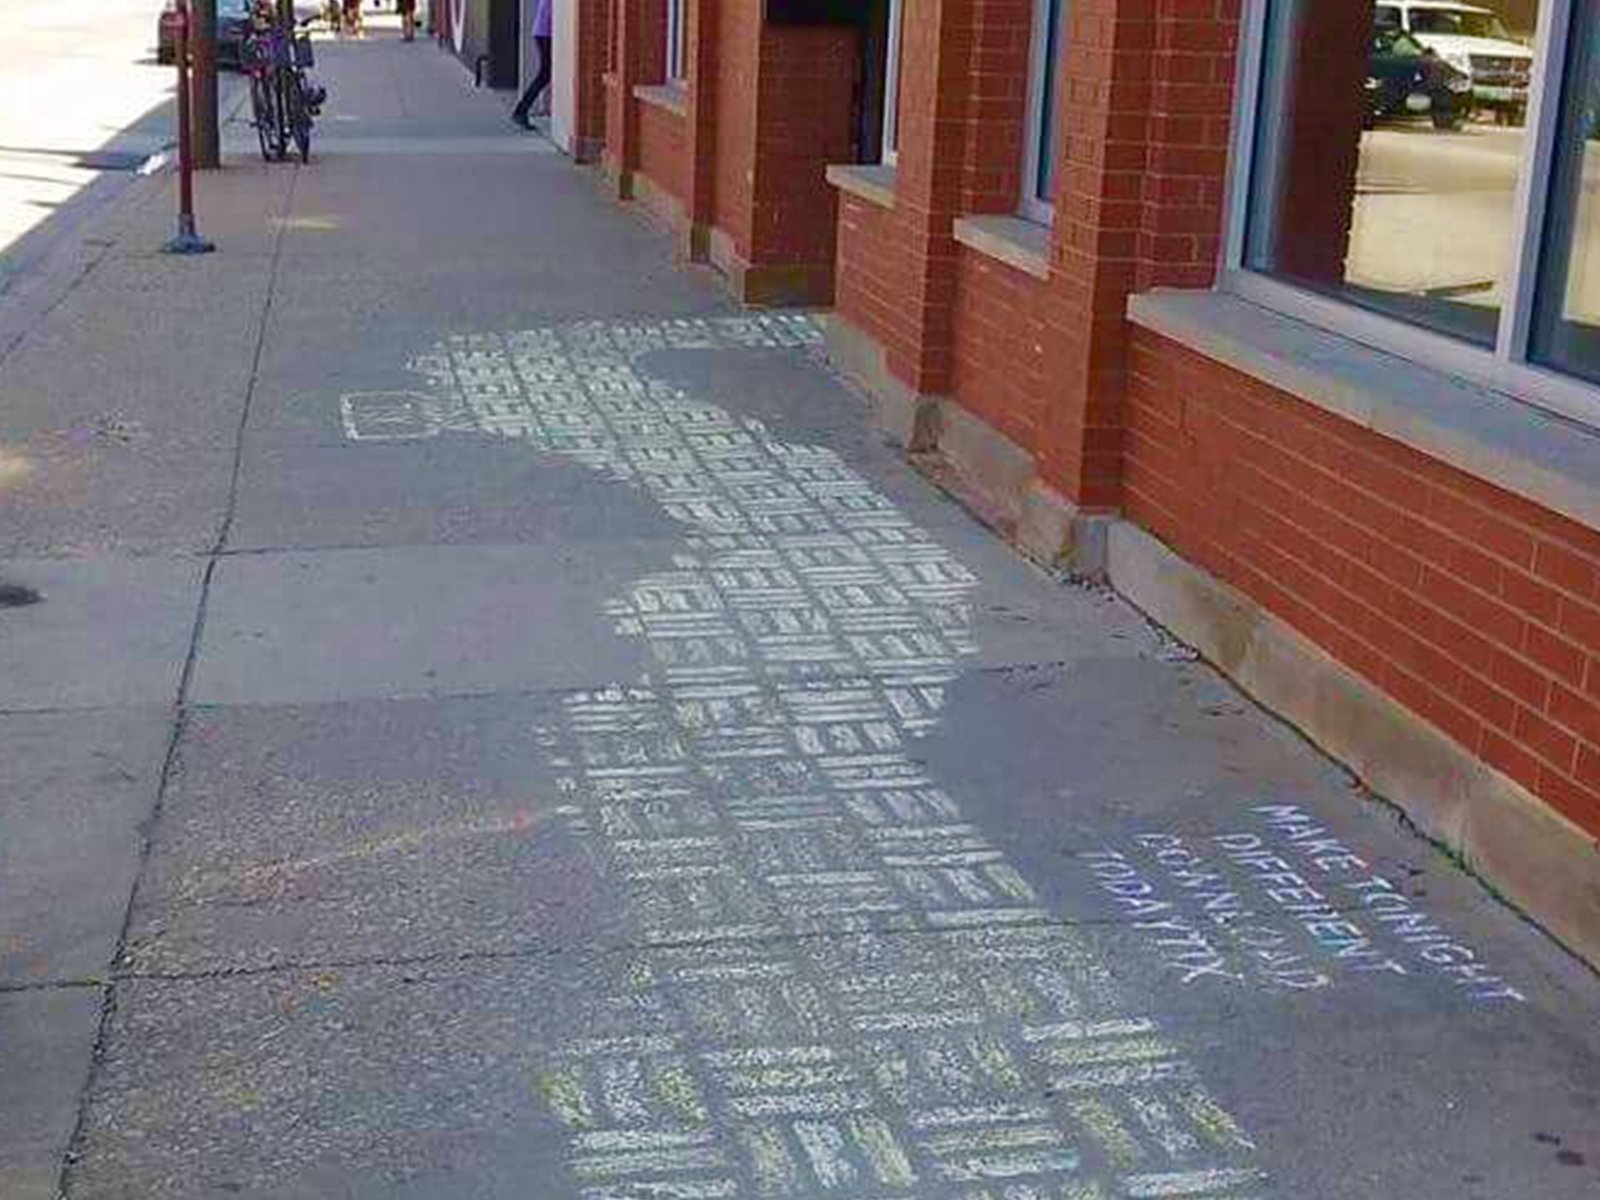 MAKE TONIGHT
DIFFERENT
DOWNLOAD
TODAYTIX